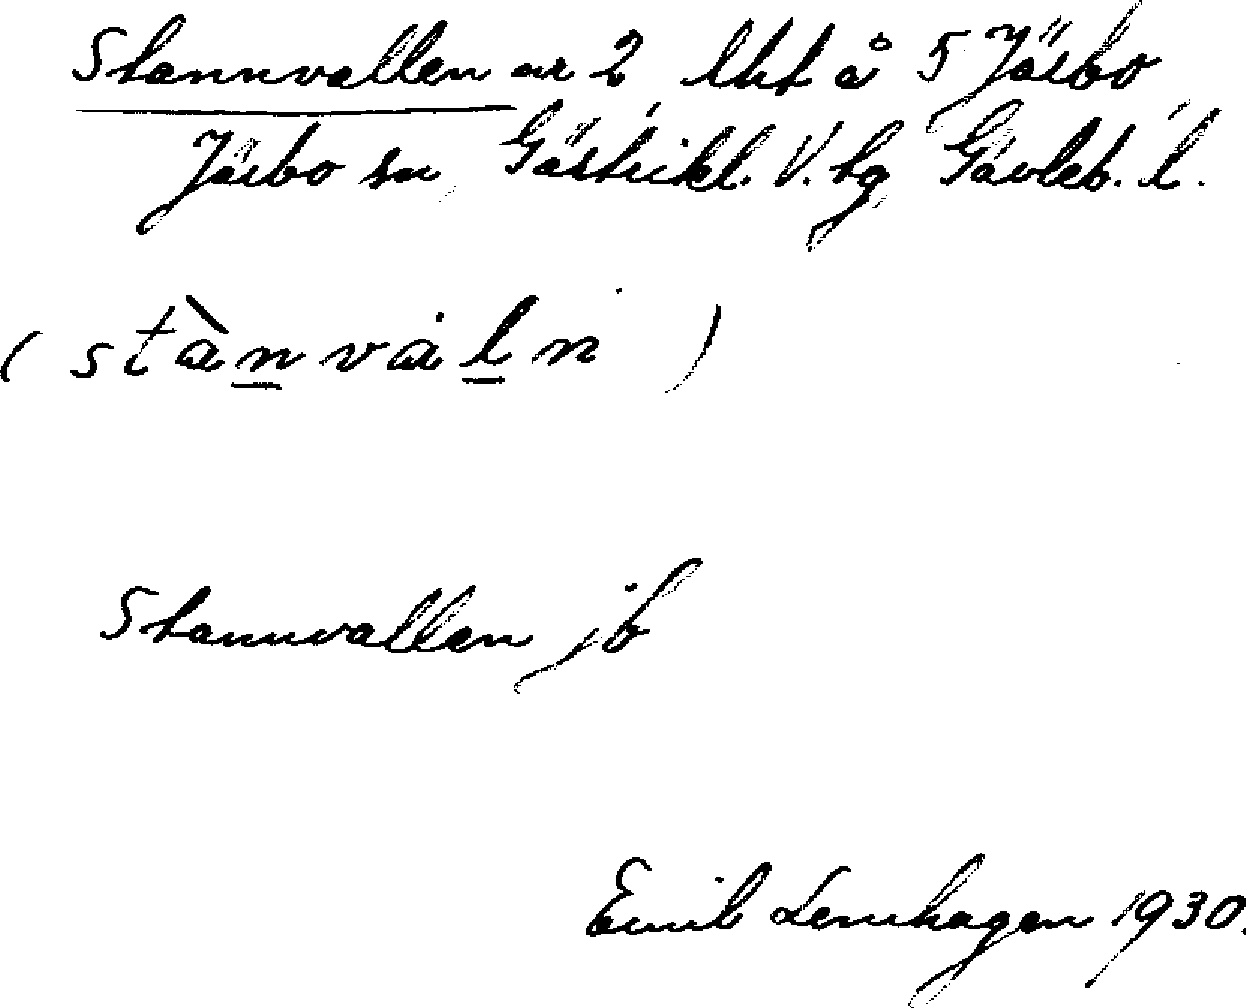 Stannvallen nr 2 lht å 5 Järbo
Järbo sn Gästrikl. V. tg Gävleb. l.
(stànvàln)
Stannvallen jb
Emil Lenhagen 1930.